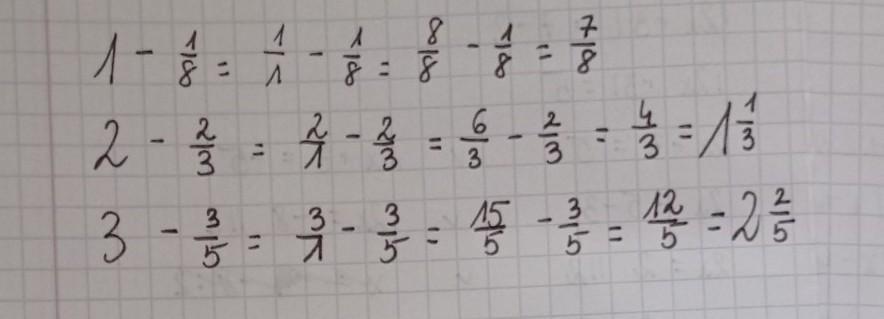 1 - 1/8 = 1/1 - 1/8 = 8/8 - 1/8 = 7/8
2 - 2/3 = 2/1 - 2/3 = 6/3 - 2/3 = 4/3 = 1 1/3
3 - 3/5 = 3/1 - 3/5 = 15/5 - 3/5 = 12/5 = 2 2/5